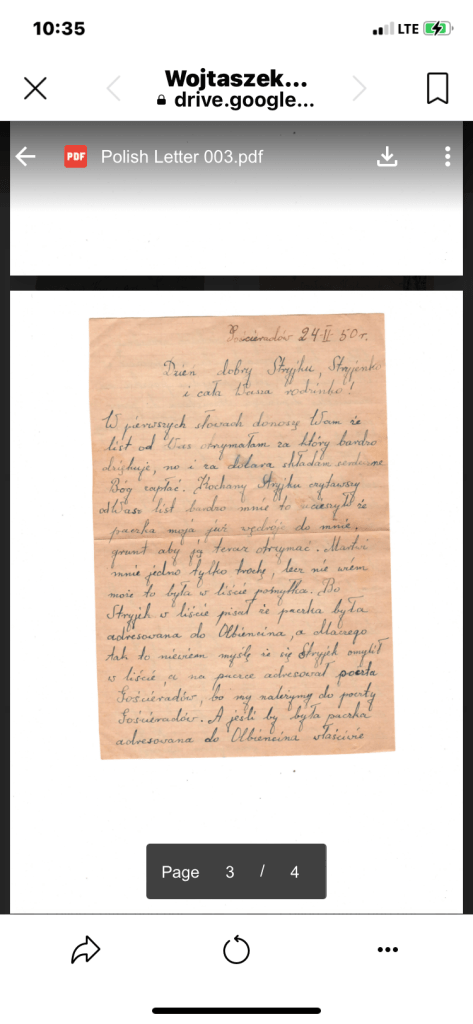 10:35
LTE
Wojtaszek...
drive.google...
PDF Polish Letter 003.pdf
Gościeradów 24 II 50 r.
Dzień dobry Stryjku, Stryjenko
i cała Wasza rodzinko!
W pierwszych słowach donoszę Wam że
list od Was otrzymałam za który bardzo
dziękuję, no i za dolara składam serdeczne
Bóg zapłać. Kochany Stryjku czytawszy
od Was list bardzo mnie to ucieszyło że
paczka moja już wędruje do mnie,
grunt aby ją teraz otrzymać. Martwi
mnie jedno tylko trochę, lecz nie wiem
może to była w liście pomyłka. Bo
Stryjek w liście pisał że paczka była
adresowana do Olbiencina, a dlaczego
tak to niewiem myślę że się Stryjek omylił
w liście, a na paczce adresował poczta
Gościeradów, bo my należymy do poczty
Gościeradów. A jeśli by była paczka
adresowana do Olbiencina właściwie
Page 3 / 4